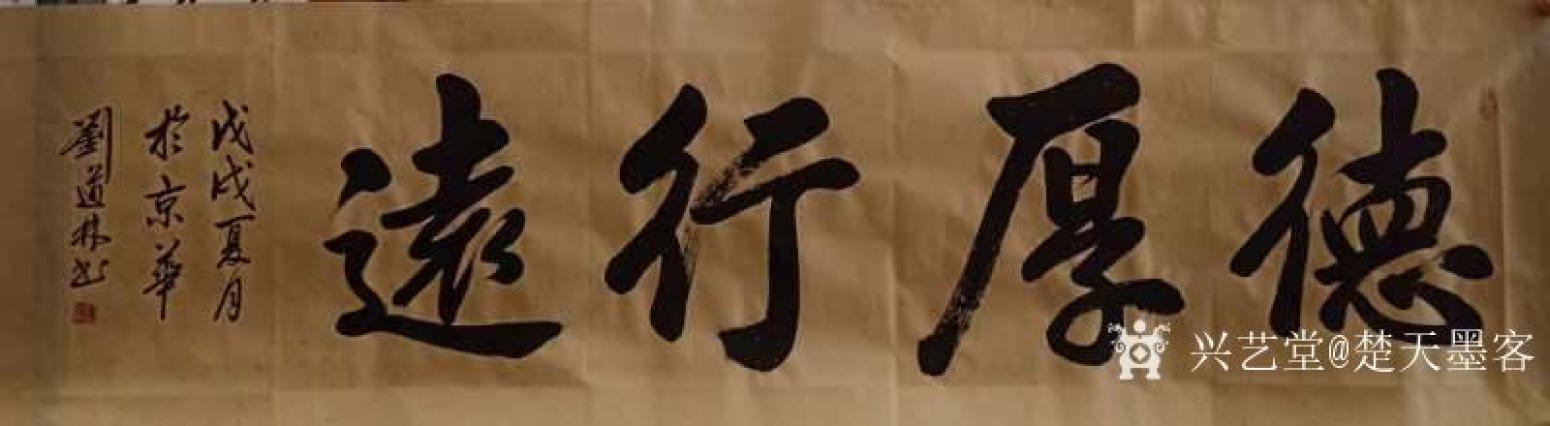 德厚行遠
戊戌夏月
於京華
劉道林书
兴艺堂@楚天墨客